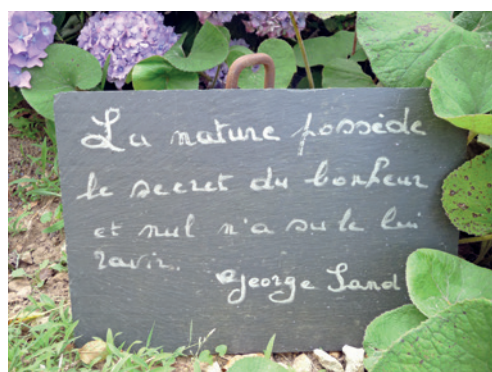 La nature possède
le secret du bonheur
et nul n'a su le lui
ravir.
George Sand